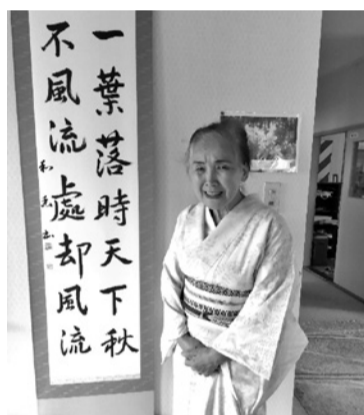 一葉落時天下秋
不風流處却風流